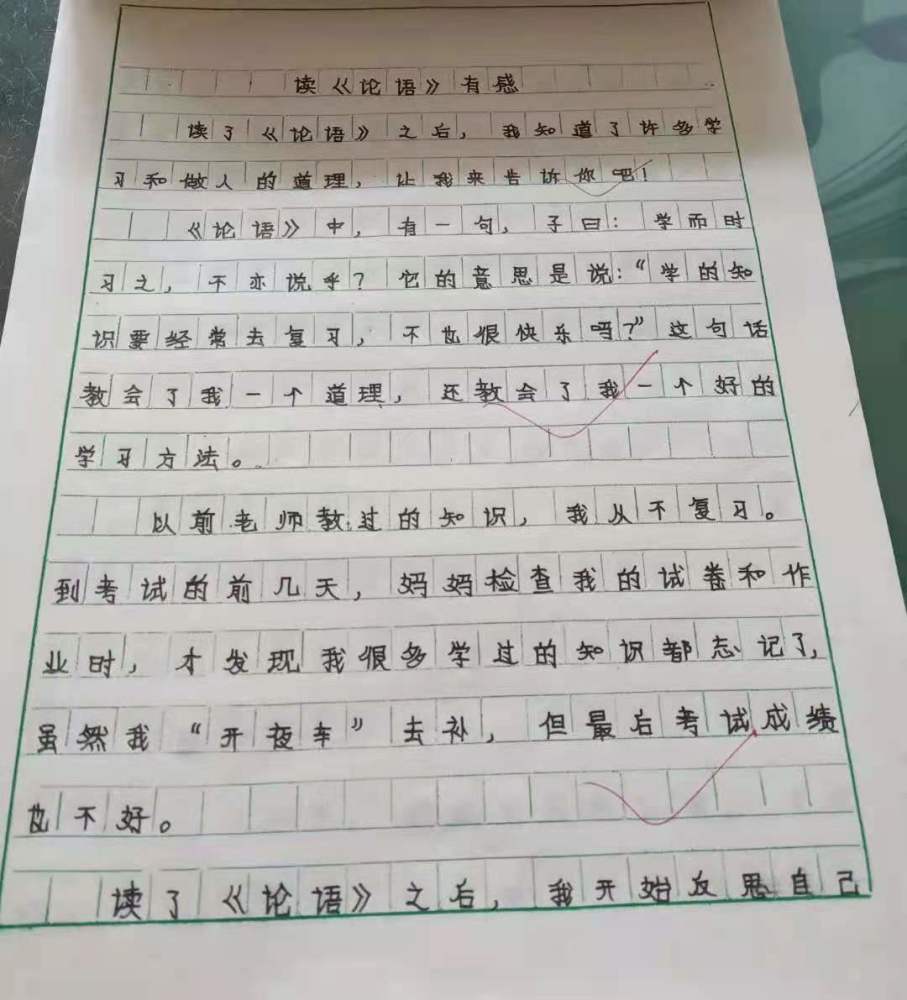 读《论语》有感
读了《论语》之后，我知道了许多学
习和做人的道理，让我来告诉你吧！
《论语》中，有一句，子曰：学而时
习之，不亦说乎？它的意思是说：“学的知
识要经常去复习，不也很快乐吗？”这句话
教会了我一个道理，还教会了我一个好的
学习方法。
以前老师教过的知识，我从不复习。
到考试的前几天，妈妈检查我的试卷和作
业时，才发现我很多学过的知识都忘记了，
虽然我“开夜车”去补，但最后考试成绩
也不好。
读了《论语》之后，我开始反思自己